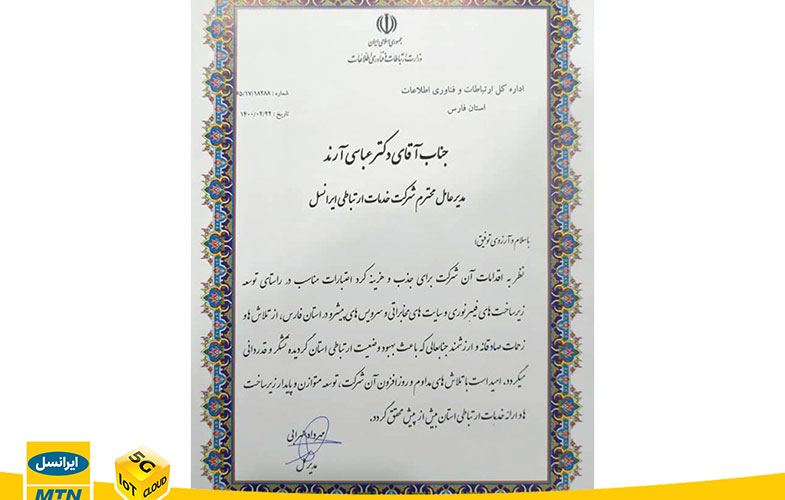 جمهوری اسلامی ایران
وزارت ارتباطات و فناوری اطلاعات
اداره کل ارتباطات و فناوری اطلاعات
استان فارس
شماره : ۶۵/۱۷/۱۸۲۸۸
تاریخ : ۱۴۰۰/۰۲/۲۲
جناب آقای دکتر عباسی آرند
مدیر عامل محترم شرکت خدمات ارتباطی ایرانسل
با سلام و آرزوی توفیق؛
نظر به اقدامات آن شرکت برای جذب و هزینه کرد اعتبارات مناسب در راستای توسعه
زیرساخت های فیبرنوری و سایت های مخابراتی و سرویس های پیشرو در استان فارس، از تلاش ها و
زحمات صادقانه و ارزشمند جنابعالی که باعث بهبود وضعیت ارتباطی استان گردیده تشکر و قدردانی
میگردد. امید است با تلاش های مداوم و روزافزون آن شرکت، توسعه متوازن و پایدار زیرساخت
ها و ارائه خدمات ارتباطی استان بیش از پیش محقق گردد.
مهرداد
مدیرکل
ایرانسل
MTN
5G
IoT
CLOUD